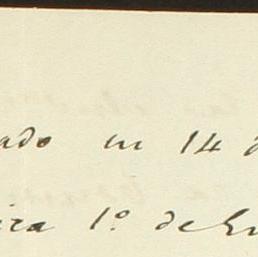 ado em 14 d
ira 1º de